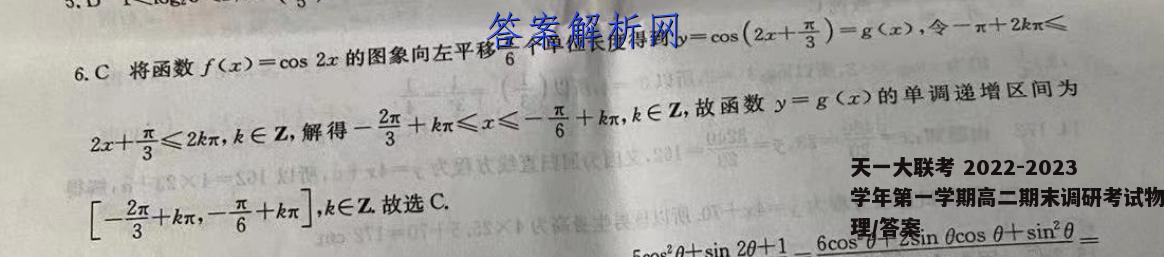 答案解析网
6. C 将函数 f(x)=cos 2x 的图象向左平移 π/6 个单位长度得到 y=cos(2x+π/3)=g(x),令-π+2kπ≤
2x+π/3≤2kπ,k∈Z,解得-2π/3+kπ≤x≤-π/6+kπ,k∈Z,故函数 y=g(x)的单调递增区间为
[-2π/3+kπ,-π/6+kπ],k∈Z.故选 C.
天一大联考 2022-2023
学年第一学期高二期末调研考试物
理/答案
cos²θ+sin 2θ+1 6cos²θ+2sin θcos θ+sin²θ =